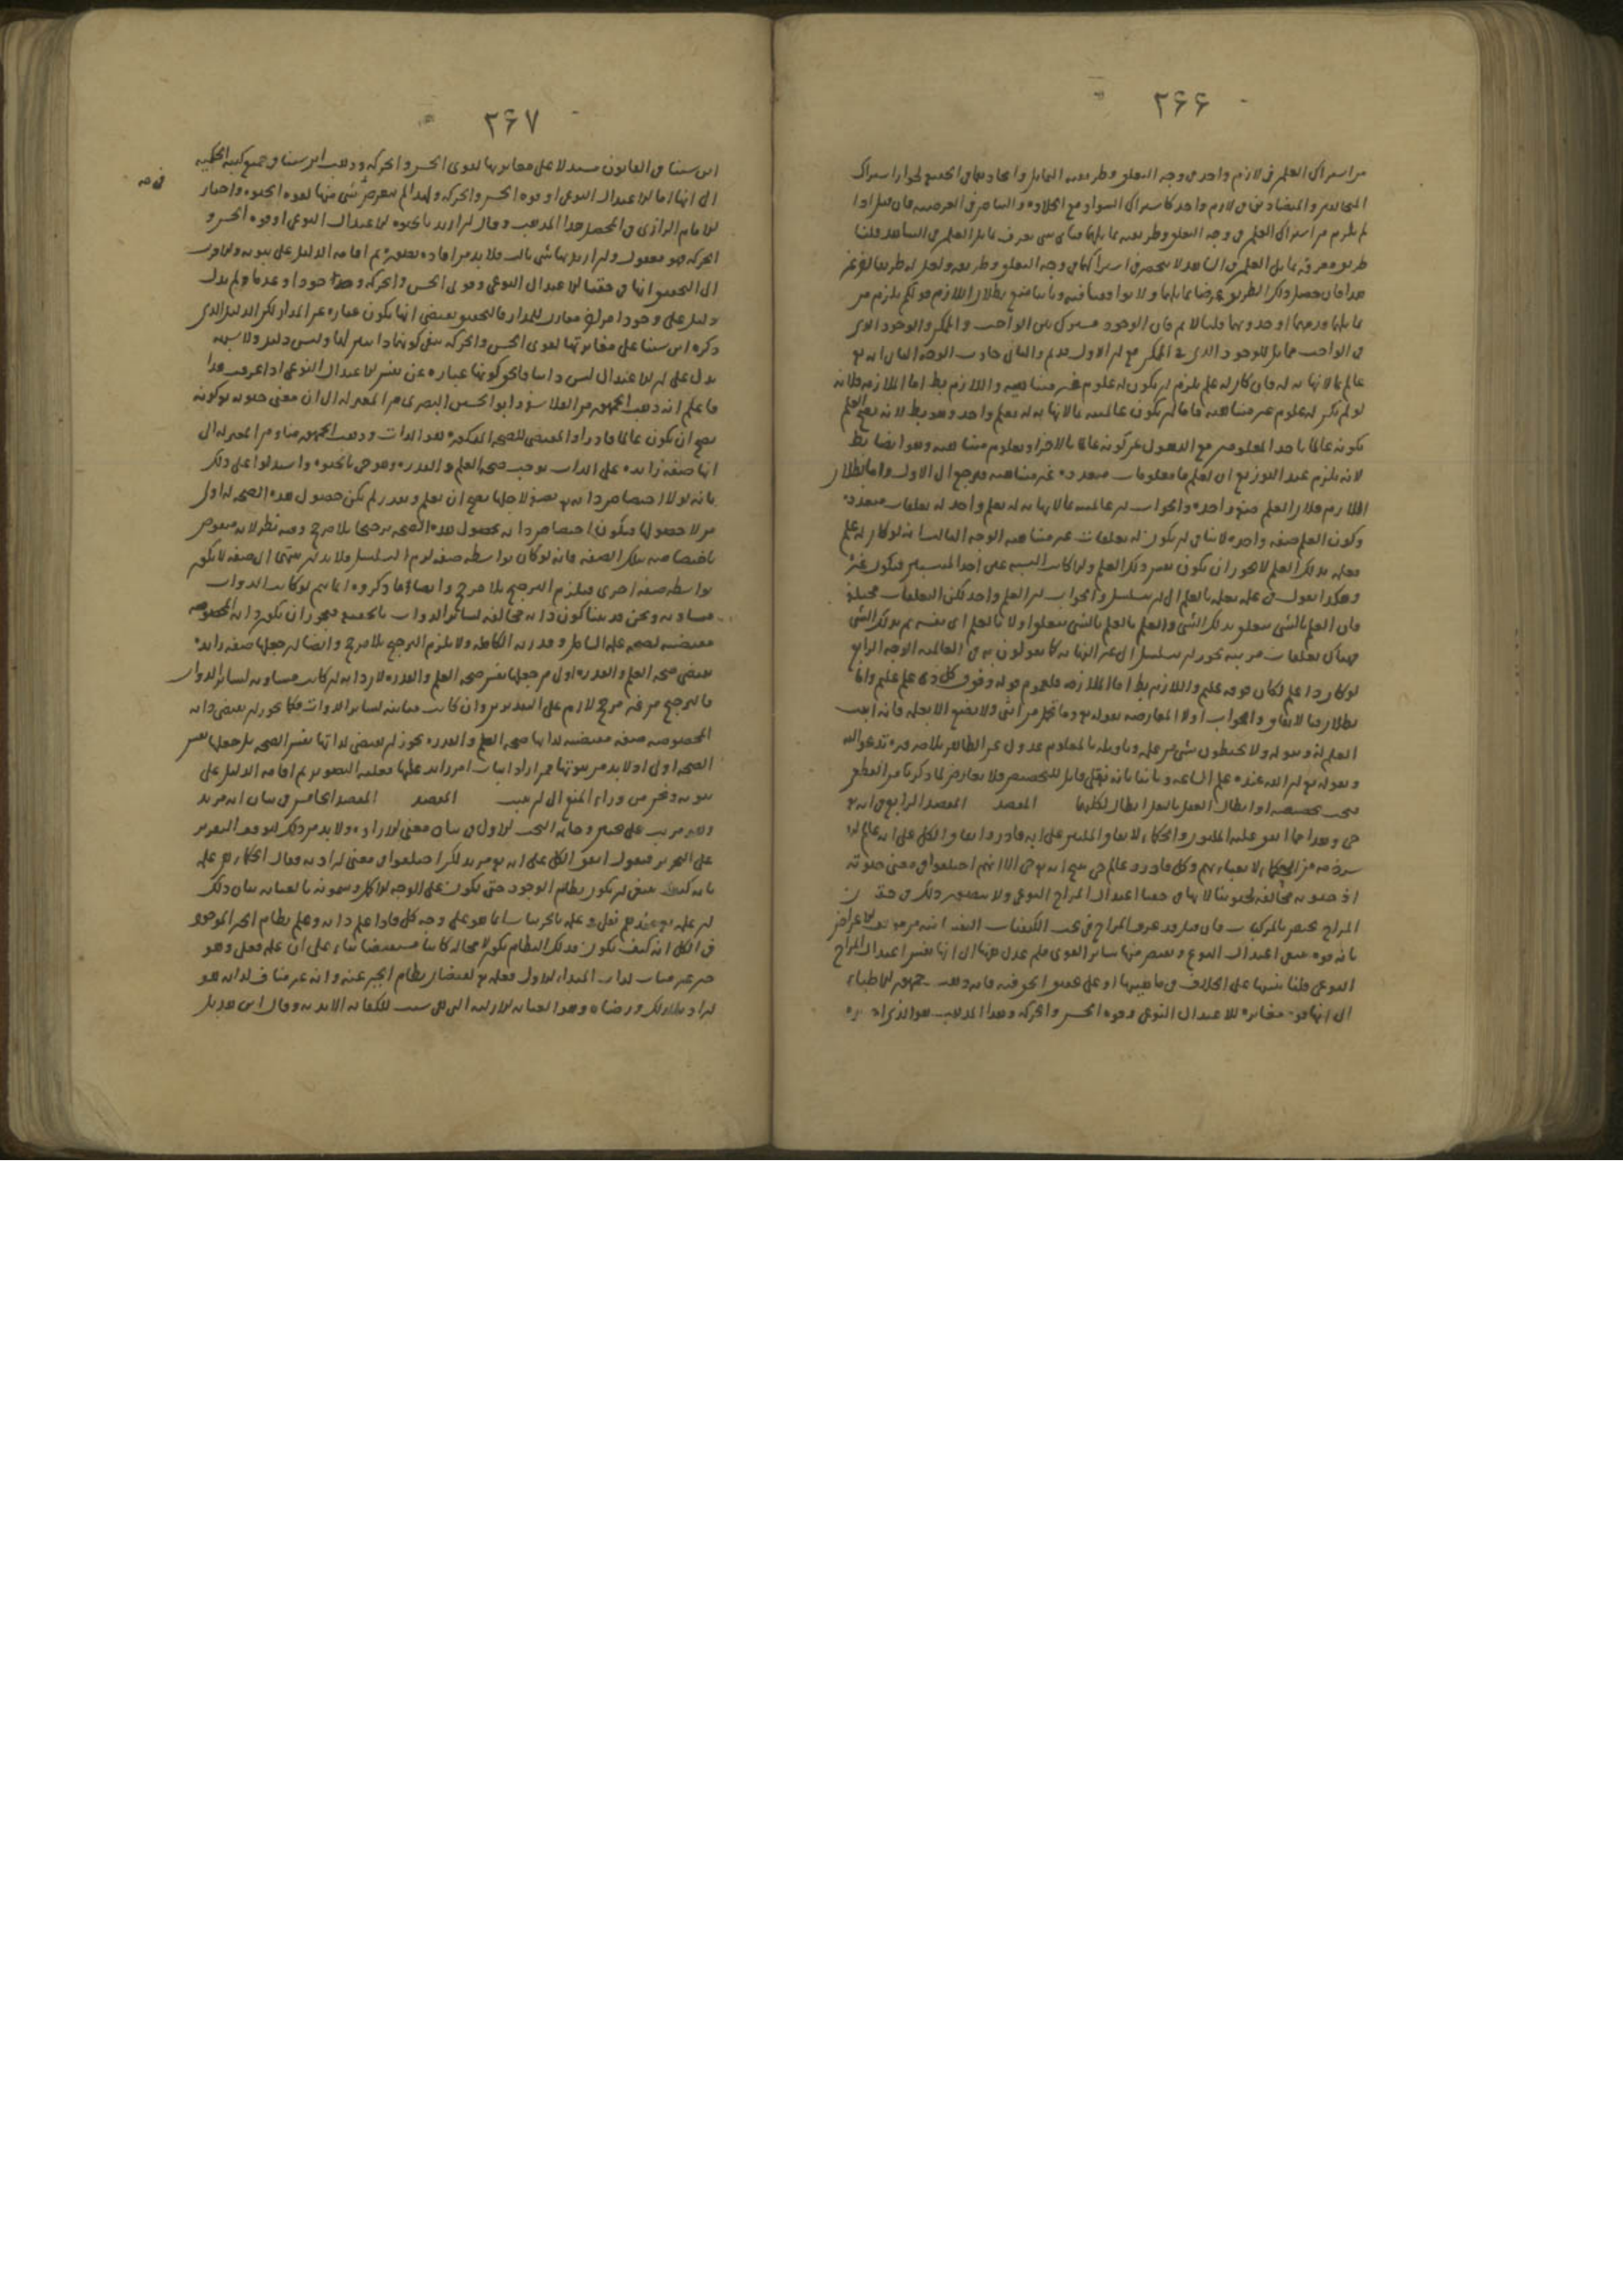 ٢٦٦
من اشتراك العلمين في لازم واحد من وجه التعلق وطريقه التماثل واتحادهما في الحقيقة لجواز اشتراك
المختلفين والمتضادين في لازم واحد كاشتراك السواد مع الحلاوة والبياض في العرضية فان قيل اذا
لم يلزم من اشتراك العلمين في وجه التعلق وطريقه تماثلهما فبأي شي يعرف تماثل العلمين في الشاهد قلنا
طريق معرفة تماثل العلمين في الشاهد لا ينحصر في اشتراكهما في وجه التعلق وطريقه ولعل له طريقا اخر غير
هذا فان حصل ذلك الطريق
تماثلهما قدمهما او حدوثهما قلنا لا نم فان الوجود مشترك بين الواجب والممكن والوجود الذي
في الواجب مماثل للوجود الذي في الممكن مع ان الاول قديم والثاني حادث الوجه الثاني انه تع
عالم بما لا نهاية له فان كان له علم يلزم ان يكون له علوم غير متناهية واللازم بط اما الملازمة فلانه
لو لم يكن له علوم غير متناهية فاما ان يكون عالميته بما لا نهاية له بعلم واحد وهو بط لانه يصح العلم
بكونه عالما باحد المعلومين مع الذهول عن كونه عالما بالاخر او بعلوم متناهية وهو ايضا بط
لانه يلزم عند التوزيع ان يعلم معلومات متعددة غير متناهية فيرجع الى الاول واما بطلان
اللازم فلان العلم صفة واحدة والجواب ان عالميته بما لا نهاية له بعلم واحد له تعلقات متعددة
وكون العلم صفة واحدة لا ينافي ان يكون له تعلقات غير متناهية الوجه الثالث انه لو كان له علم
فعلمه بذلك العلم لا يجوز ان يكون نفس ذلك العلم والا كانت النسبة عين احد المنتسبين فيكون غيره
وهكذا القول في علمه بعلمه بالعلم الى ان يتسلسل والجواب ان العلم واحد لكن التعلقات مختلفة
فان العلم بالشي متعلق بذلك الشي والعلم بالعلم بالشي متعلق اولا بالعلم اي بنفسه ثم بذلك الشي
فهناك تعلقات مرتبة يجوز ان يتسلسل الى غير النهاية كما تقولون به في العالمية الوجه الرابع
لو كان ذا علم لكان فوقه عليم واللازم بط اما الملازمة فلعموم قوله وفوق كل ذي علم عليم واما
بطلان فبالاتفاق والجواب اولا المعارضة بقوله تع وما تحمل من انثى ولا تضع الا بعلمه فانه اثبت
العلم له وبقوله ولا يحيطون بشي من علمه وتاويله بالمعلوم عدول عن الظاهر بلا ضرورة تدعو اليه
وبقوله تع ان الله عنده علم الساعة وثانيا بانه نقلي قابل للتخصيص فلا يعارض لما ذكرنا من القطعي
فيجب تخصيصه او ابطال العقل بالنقل ابطال لكليهما المقصد المقصد الرابع في انه تع
حي وهذا مما اتفق عليه المليون والحكماء لاتفاق المليين على انه قادر واتفاق الكل على انه عالم الا
شرذمة من الحكماء لا يعبأ بهم وكل قادر وعالم حي فيصح انه تع حي الا انهم اختلفوا في معنى حيوته
اذ حيوته مخالفة لحيوتنا لانها في حقنا اعتدال المزاج النوعي ولا يتصور ذلك في حقه
المزاج مختص بالمركبات فان قيل قد عرف المزاج في بحث الكيفيات النفسانية من مباحث الاعراض
بانه قوة تتبع اعتدال النوع ويفيض منها سائر القوى فلم عدل ههنا الى انها نفس اعتدال المزاج
النوعي قلنا تنبيها على الخلاف في ماهيتها او على تحقيق الحق فيه فانه ذهب جمهور الاطباء
الى انها قوة مغايرة للاعتدال النوعي وقوة الحس والحركة وهذا المذهب هو الذي
٢٦٧
ابن سينا في القانون مستدلا على مغايرتها لقوى الحس والحركة وذهب ابن سينا في جميع كتبه الحكمية
الى انها اما الاعتدال النوعي او قوة الحس والحركة ولهذا لم يتعرض لشي منها لقوة الحيوة واختار
الامام الرازي في المحصل هذا المذهب وقال ان اريد بالحيوة الاعتدال النوعي او قوة الحس و
الحركة فهو معقول وان اريد بها شي ثالث فلا بد من افادة تصوره ثم اقامة الدليل على ثبوته والاقرب
الى التحقيق انها في حقنا الاعتدال النوعي وقوى الحس والحركة وجودا وعدما ولم يدل
دليل على وجود امر اخر مغاير للمدار فالتحقيق يقتضي انها يكون عبارة عن المدار لكن الدليل الذي
ذكره ابن سينا على مغايرتها لقوى الحس والحركة ينفي كونها دائرين معها وليس دليل ولا شبهة
يدل على ان الاعتدال ليس دائرا فالحق كونها عبارة عن نفس الاعتدال النوعي اذا عرفت هذا
فاعلم انه ذهب الجمهور من الفلاسفة وابو الحسين البصري من المعتزلة الى ان معنى حيوته هو كونه
يصح ان يكون عالما قادرا والمقتضي للصحة المذكورة هو الذات وذهب الجمهور منا ومن المعتزلة الى
انها صفة زائدة على الذات توجب صحة العلم والقدرة وهو حي بالحيوة واستدلوا على ذلك
بانه لولا اختصاص ذاته تع بصفة لاجلها يصح ان يعلم ويقدر لم يكن حصول هذه الصحة له اولى
من لا حصولها فيكون اختصاص ذاته بحصول هذه الصحة ترجيحا بلا مرجح وفيه نظر لانه منقوض
باختصاصه بتلك الصفة فانه لو كان بواسطة صفة لزم التسلسل فلا بد ان ينتهي الى صفة لا يكون
بواسطة صفة اخرى فيلزم الترجيح بلا مرجح وايضا فما ذكروه انما يتم لو كانت الذوات
متساوية ونحن قد بينا كون ذاته مخالفة لسائر الذوات بالحقيقة فيجوز ان يكون ذاته المخصوصة
مقتضية لصحة علمه الشامل وقدرته الكاملة ولا يلزم الترجيح بلا مرجح وايضا ان جعلها صفة زائدة
يقتضي صحة العلم والقدرة اولى من جعلها نفس صحة العلم والقدرة لان ذاته ان كانت مساوية لسائر الذوات
فالترجيح من غير مرجح لازم على التقديرين وان كانت مباينة لسائر الذوات فكما يجوز ان يقتضي ذاته
المخصوصة صفة مقتضية لذاتها صحة العلم والقدرة يجوز ان يقتضي لذاتها نفس الصحة بل جعلها نفس
الصحة اولى اذ لا بد من ثبوتها فمن اراد اثبات امر زائد عليها فعليه التصوير ثم اقامة الدليل على
ثبوته ونحن من وراء المنع الى ان يثبت المقصد المقصد الخامس في بيان انه مريد
ولنرتب على بحثين وخاتمة البحث الاول في بيان معنى الارادة ولا بد من ذلك ليتوقف التقرير
على التحرير فنقول اتفق الكل على انه تع مريد لكن اختلفوا في معنى ارادته فقال الحكماء هي علمه
بانه كيف ينبغي ان يكون نظام الوجود حتى يكون على الوجه الاكمل ويسمونه بالعناية بيان ذلك
ان علمه تع عندهم فعلي وعلمه بالجزئيات انما هو على وجه كلي فاذا علم ذاته وعلم نظام الخير الموجود
في الكل انه كيف يكون فذلك النظام يكون لا محالة كائنا مستفيضا بناء على ان علمه فعلي وهو
خير غير مناف لذات المبدأ الاول فعلمه تع بفيضان نظام الخير عنه وانه غير مناف لذاته هو
ارادته لذلك ورضاه وهو العناية الازلية التي هي سبب للكفاية الابدية وقال ابو الهذيل